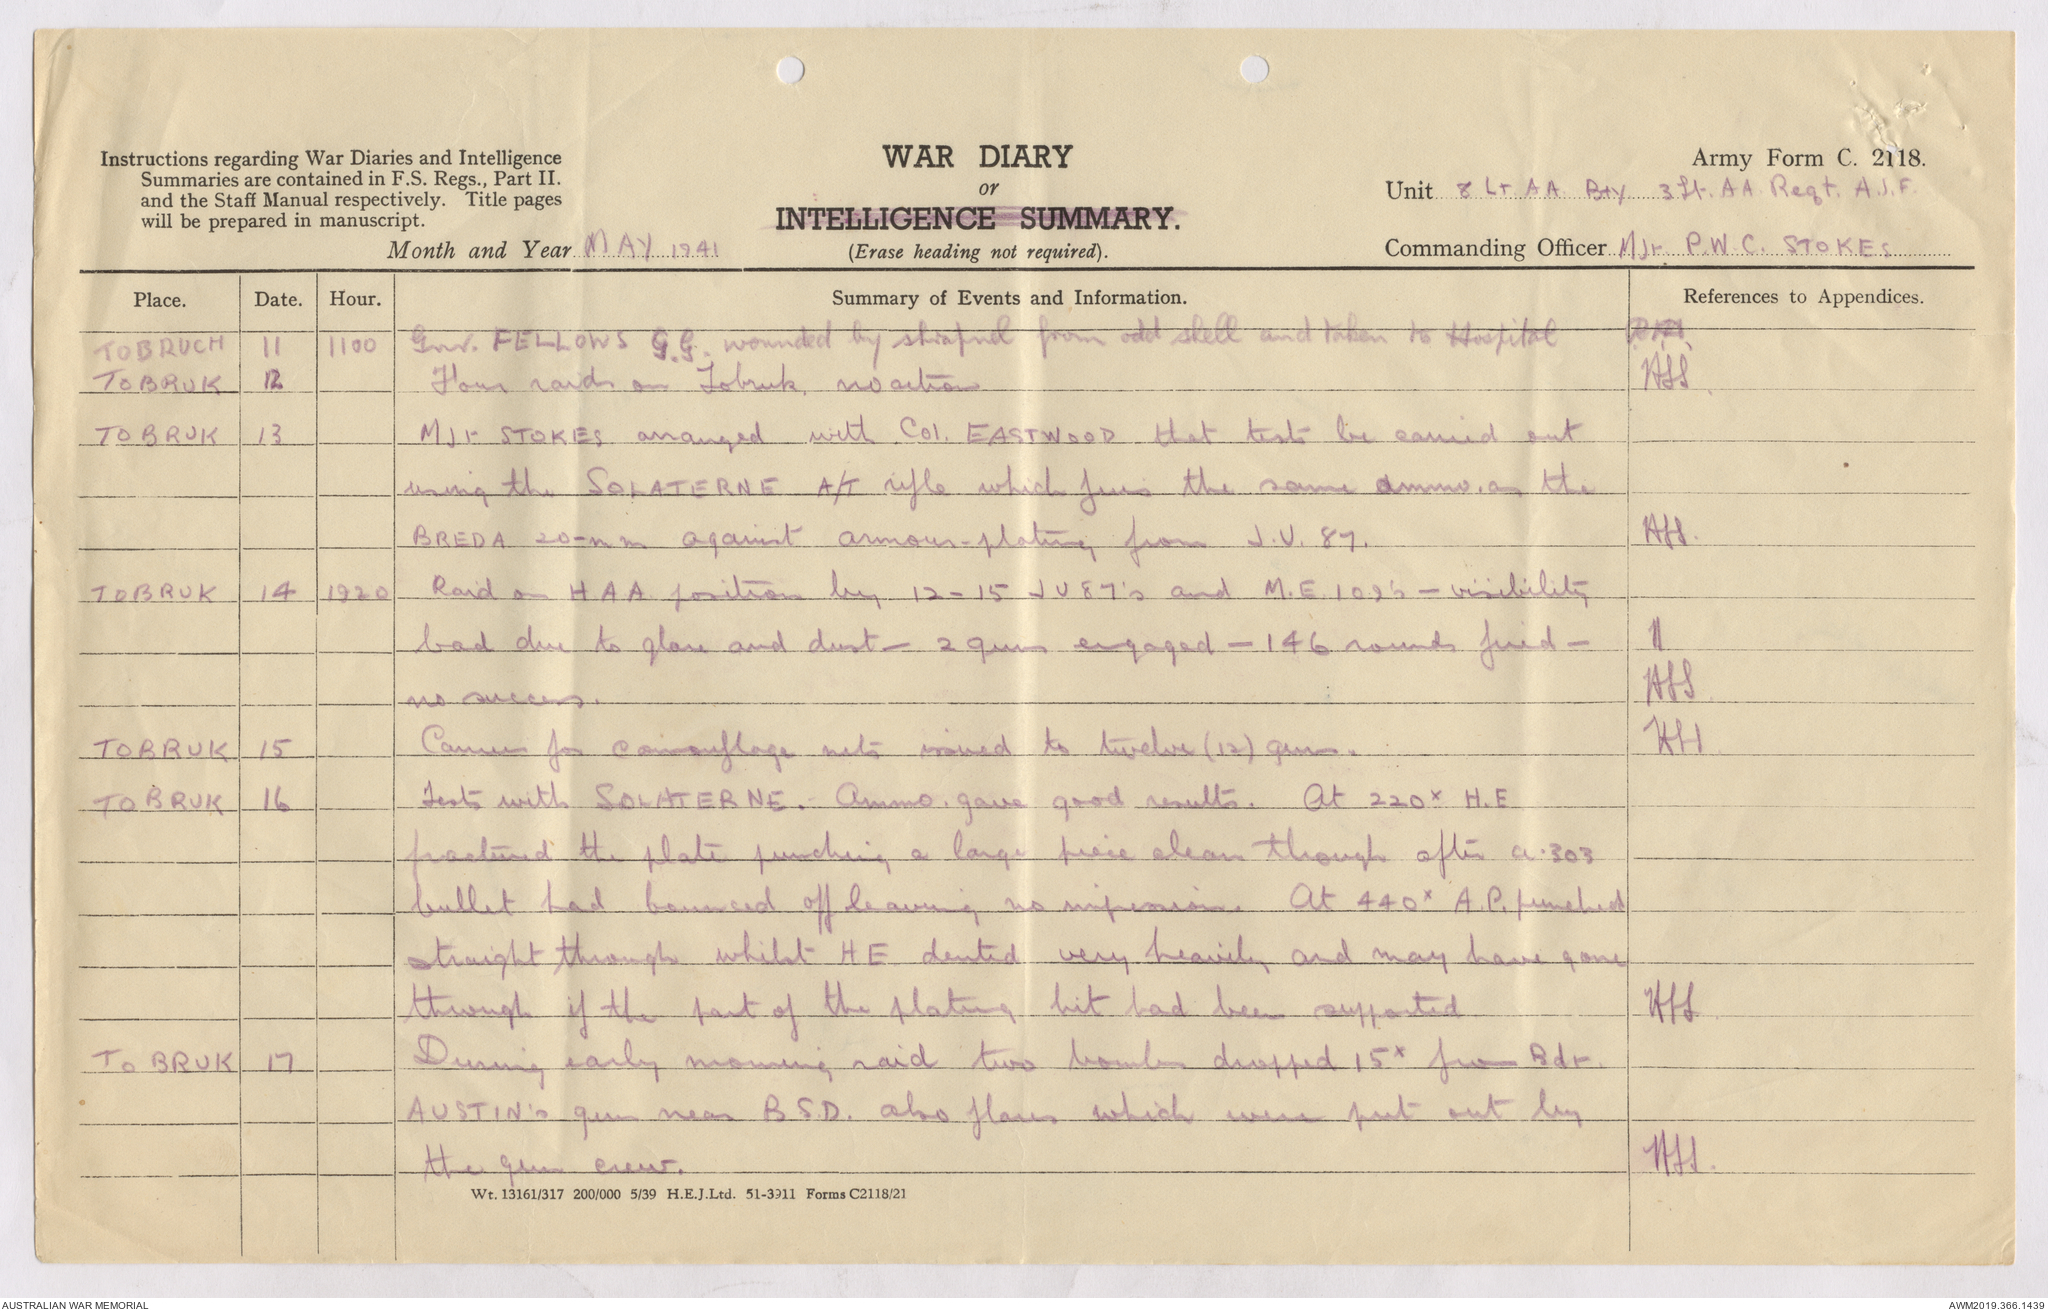 Instructions regarding War Diaries and Intelligence
Summaries are contained in F.S. Regs., Part II.
and the Staff Manual respectively. Title pages
will be prepared in manuscript.
Month and Year MAY 1941
WAR DIARY
or
INTELLIGENCE SUMMARY.
(Erase heading not required).
Army Form C. 2118.
Unit 8 Lt. AA. Bty 3 Lt. AA Regt. A.I.F.
Commanding Officer Mjr. P.W.C. STOKES
Place. Date. Hour. Summary of Events and Information. References to Appendices.
TOBRUCH 11 1100 Gnr. FELLOWS G.G. wounded by shrapnel from odd shell and taken to Hospital
TOBRUK 12 Four raids on Tobruk, no action
TOBRUK 13 Mjr STOKES arranged with Col. EASTWOOD that tests be carried out
using the SOLATERNE A/T rifle which fires the same ammo. as the
BREDA 20-mm against armour-plating from J.U. 87.
TOBRUK 14 1920 Raid on HAA position by 12-15 JU87's and M.E. 109's - visibility
bad due to glare and dust - 2 guns engaged - 146 rounds fired -
no success.
TOBRUK 15 Canvas for camouflage nets issued to twelve (12) guns.
TOBRUK 16 Tests with SOLATERNE. - Ammo. gave good results. At 220x H.E
fractured the plate punching a large piece clean through after a .303
bullet had bounced off leaving no impression. At 440x A.P. punched
straight through whilst HE dented very heavily and may have gone
through if the part of the plating hit had been supported
TOBRUK 17 During early morning raid two bombs dropped 15x from Bdr.
AUSTIN's gun near B.S.D. also flares which were put out by
the gun crew.
Wt. 13161/317 200/000 5/39 H.E.J.Ltd. 51-3911 Forms C2118/21
AUSTRALIAN WAR MEMORIAL
AWM2019.366.1439